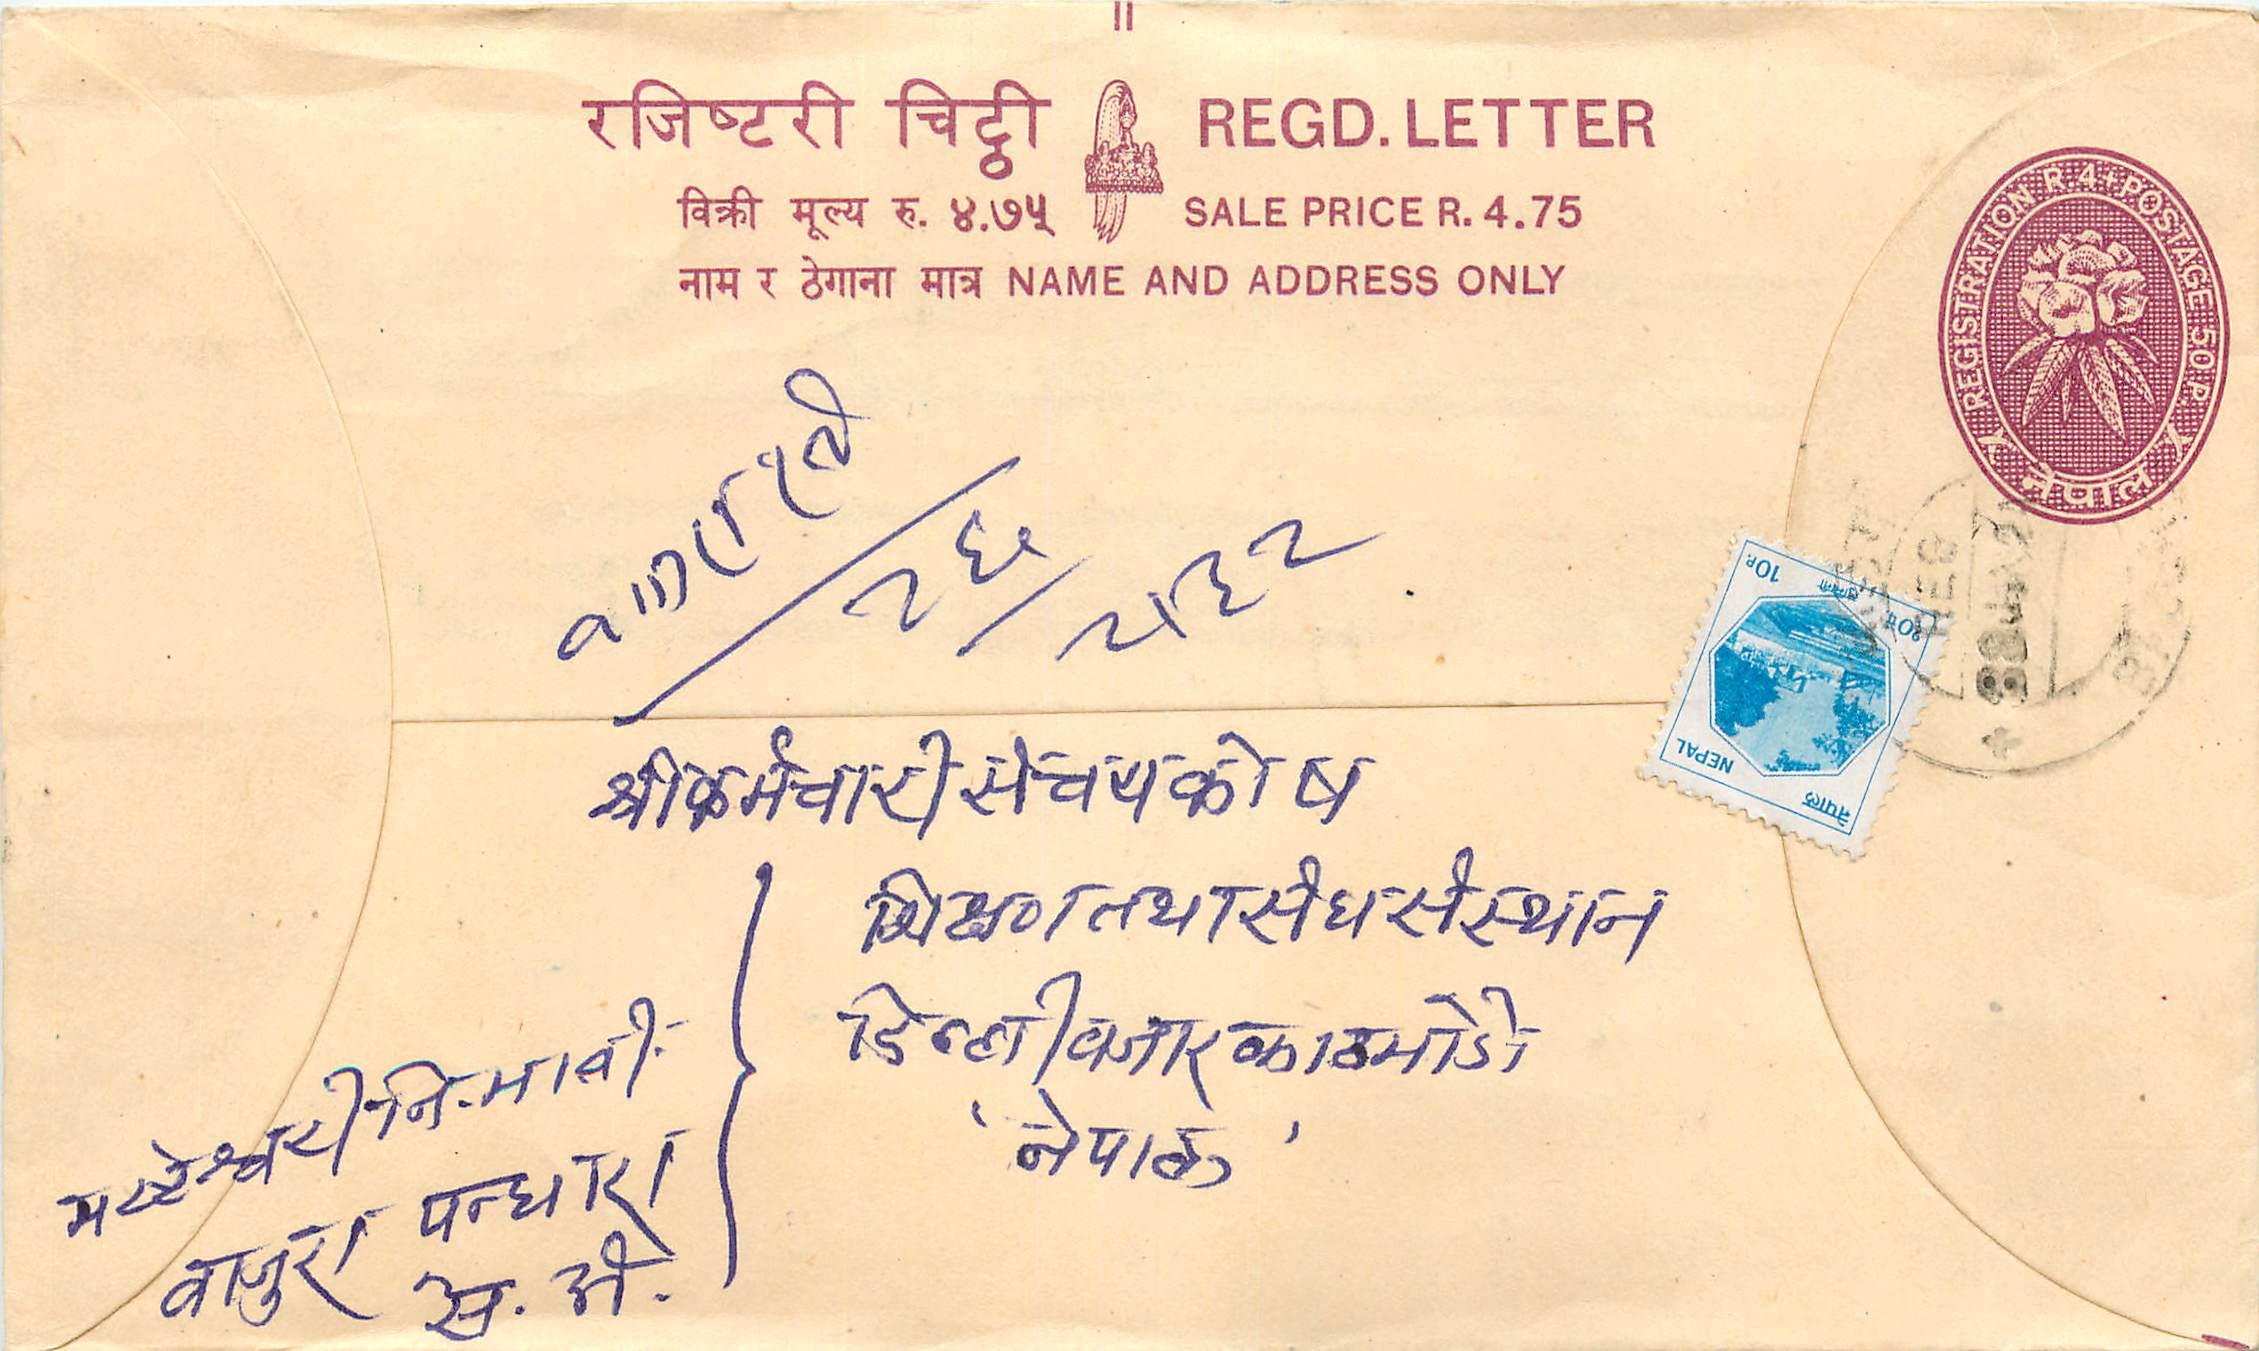 रजिष्टरी चिट्ठी REGD. LETTER
विक्री मूल्य रु. ४.७५ SALE PRICE R. 4.75
नाम र ठेगाना मात्र NAME AND ADDRESS ONLY
REGISTRATION R. 4 + POSTAGE 50 P.
नेपाल
10P.
१०पै
NEPAL
नेपाल
२६९
श्री कर्मचारी संचयकोष
शिक्षण तथा संघ संस्थान
डिल्ली वजार काठमाडौं
'नेपाल'
नि.मा.वी.
वाजुरा पन्धारा
से. अं.